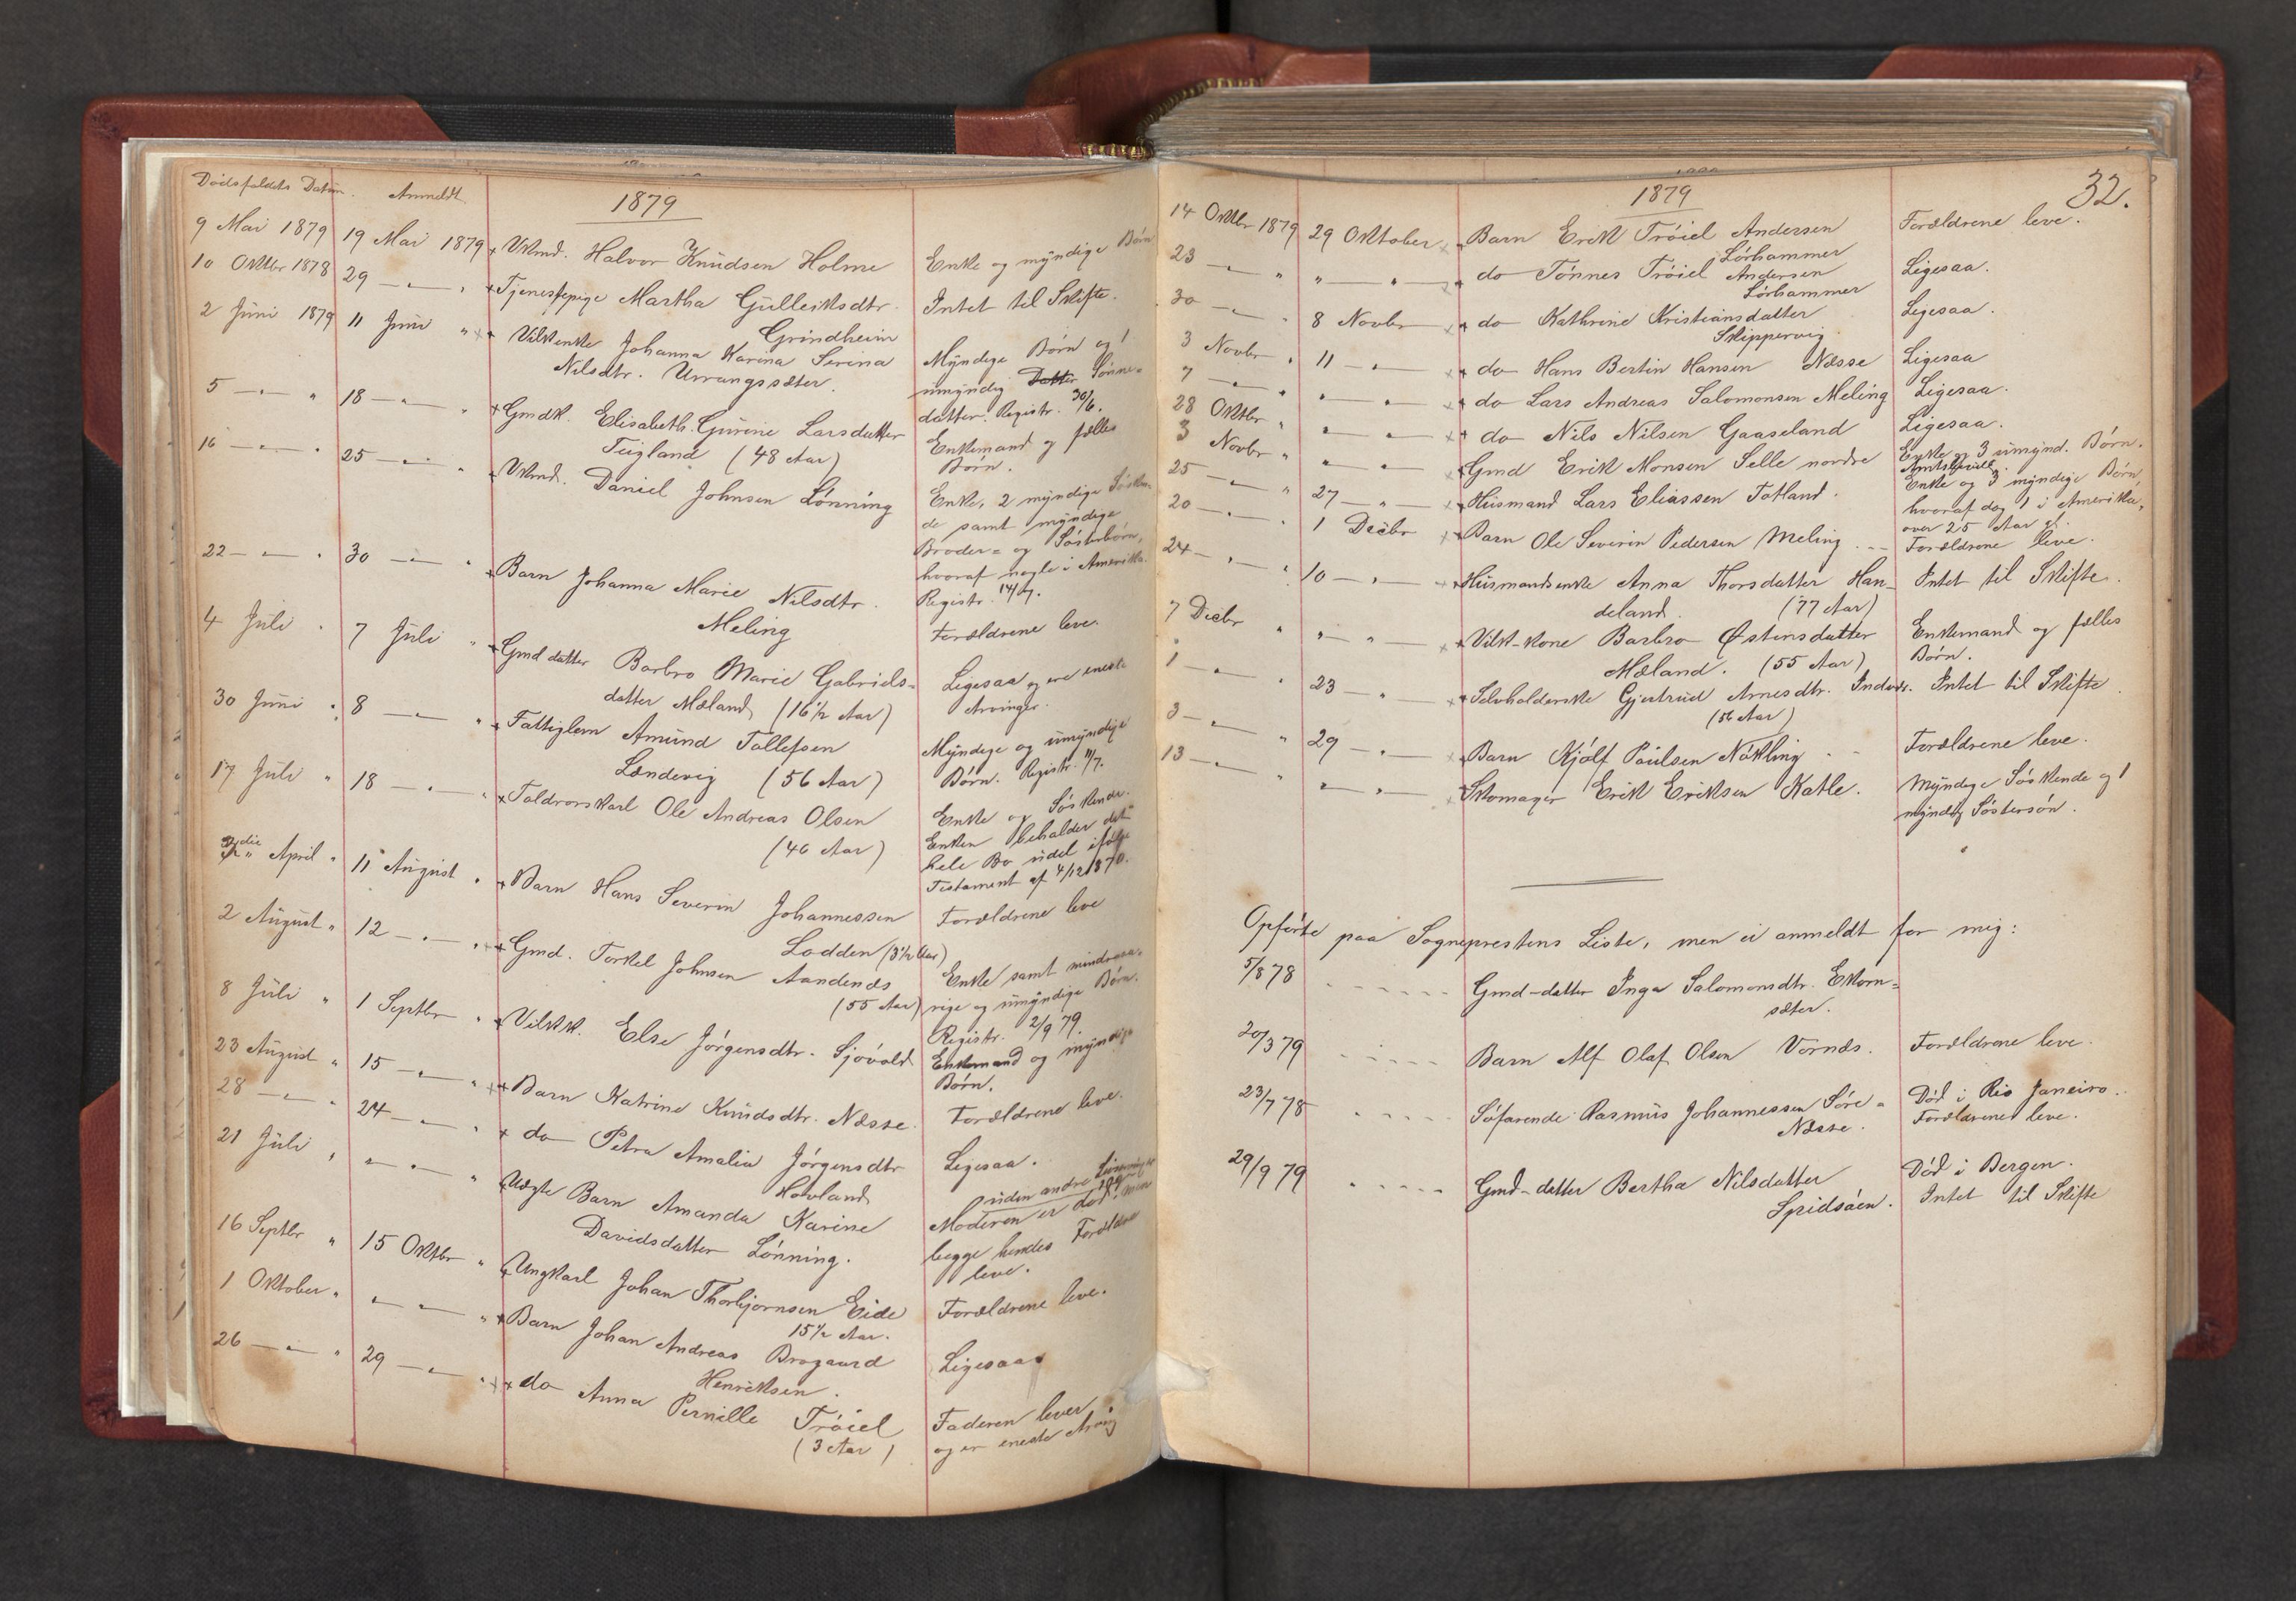 Dödsfaldets Datum. Anmeldt. 1879
9 Mai 1879 19 Mai 1879 Vkmd. Halvor Knudsen Holme Enke og myndige Börn
10 Oktbr 1878 29 — " — " Tjenestepige Martha Gulleiksdtr. Intet til Skifte.
Grindheim
2 Juni 1879 11 Juni " Vilkenke Johanna Karina Serina Myndige Börn og 1
Nilsdtr. Urrangssæter. umyndig Datter Sönne=
datter. Registr. 30/6.
5 — " — " 18 — " — " Gmdk. Elisabeth Gurine Larsdatter Enkemand og fælles
Tiigland (48 Aar) Börn.
16 — " — " 25 — " — " Vkmd. Daniel Johnsen Lönning Enke, 2 myndige Sösken
de samt myndige
Broder= og Sösterbörn,
hvoraf nogle i Amerika.
Registr. 14/7.
22 — " — " 30 — " — " Barn Johanna Marie Nilsdtr.
Meling Forældrene leve.
4 Juli " 7 Juli " Gmd datter Barbro Marie Gabriels= Ligesaa og ere eneste
datter Mæland (16½ Aar) Arvinger.
30 Juni " 8 — " — " Fattiglem Amund Tollefsen Myndige og umyndige
Landevig (56 Aar) Börn. Registr. 11/7.
17 Juli " 18 — " — " Toldrorskarl Ole Andreas Olsen Enke og Söskende.
(46 Aar) Enken beholder det
hele Bo udelt ifölge
Testament af 4/12 1870.
April " 11 August " Barn Hans Severin Johannessen Forældrene leve
Lodden (3½ Aar)
2 August " 12 — " — " Gmd. Torkel Johnsen Aandenæs Enke samt mindreaa=
(55 Aar) rige og umyndige Börn.
Registr. 2/9 79.
8 Juli " 1 Septbr " Vilkk. Else Jörgensdtr. Sjövold Enkemand og myndige
Börn.
23 August " 15 — " — " Barn Katrine Knudsdtr. Næsse. Forældrene leve.
28 — " — " 24 — " — " do Petra Amalia Jörgensdtr Ligesaa.
Hovland
21 Juli " " — " — " Uægte Barn Amanda Karine uden andre Livsarvinger
Davidsdatter Lönning. Moderen er död, men
begge hendes Forældre
leve.
16 Septbr " 15 Oktbr " Ungkarl Johan Thorbjornsen Eide Forældrene leve.
15½ Aar.
1 Oktober " " — " — " Barn Johan Andreas Brogaard Ligesaa
Henriksen.
26 — " — " 29 — " — " do Anna Pernille Tröiel Faderen lever
(3 Aar) og er eneste Arving
1879 32.
14 Oktbr 1879 29 Oktober Barn Erik Tröiel Andersen Forældrene leve.
Lörhammer
23 — " — " " — " — do Tönnes Tröiel Andersen Ligesaa.
Lörhammer
30 — " — " 8 Novbr do Kathrine Kristiansdatter Ligesaa.
Skippervig
3 Novbr " 11 — " — do Hans Bertin Hansen Næsse Ligesaa
7 — " — " " — " — do Lars Andreas Salomonsen Meling Ligesaa.
28 Oktbr " " — " — do Nils Nilsen Gaaseland Ligesaa.
3 Novbr " " — " — Gmd Erik Monsen Selle nordre Enke og 3 umynd. Börn.
25 — " — " 27 — " — Husmand Lars Eliassen Totland. Enke og 3 myndige Börn,
hvoraf dog 1 i Amerika,
over 25 Aar gl.
20 — " — " 1 Decbr Barn Ole Severin Pedersen Meling Forældrene leve.
24 — " — " 10 — " — Husmandsenke Anna Thorsdatter Han- Intet til Skifte.
deland. (77 Aar)
7 Decbr " " — " — Vilk-kone Barbro Østensdatter Enkemand og fælles
Mæland. (55 Aar) Börn.
1 — " — " 23 — " — Selvholderske Gjertrud Arnesdtr. Indvær. Intet til Skifte.
(56 Aar)
3 — " — " 29 — " — Barn Kjölf Paulsen Nökling Forældrene leve.
13 — " — " " — " — Skomager Erik Eriksen Katle. Myndige Söskende og 1
myndig Söstersön.
Opförte paa Sogneprestens Liste, men ei anmeldt for mig:
5/8 78 Gmd-datter Inga Salomonsdtr. Ekorn=
sæter.
20/3 79 Barn Alf Olaf Olsen Vornæs. Forældrene leve.
23/7 78 Söfarende Rasmus Johannessen Söre= Död i Rio Janeiro.
Næsse. Forældrene leve.
29/9 79 Gmd-datter Bertha Nilsdatter Död i Bergen.
Spidsöen. Intet til Skifte